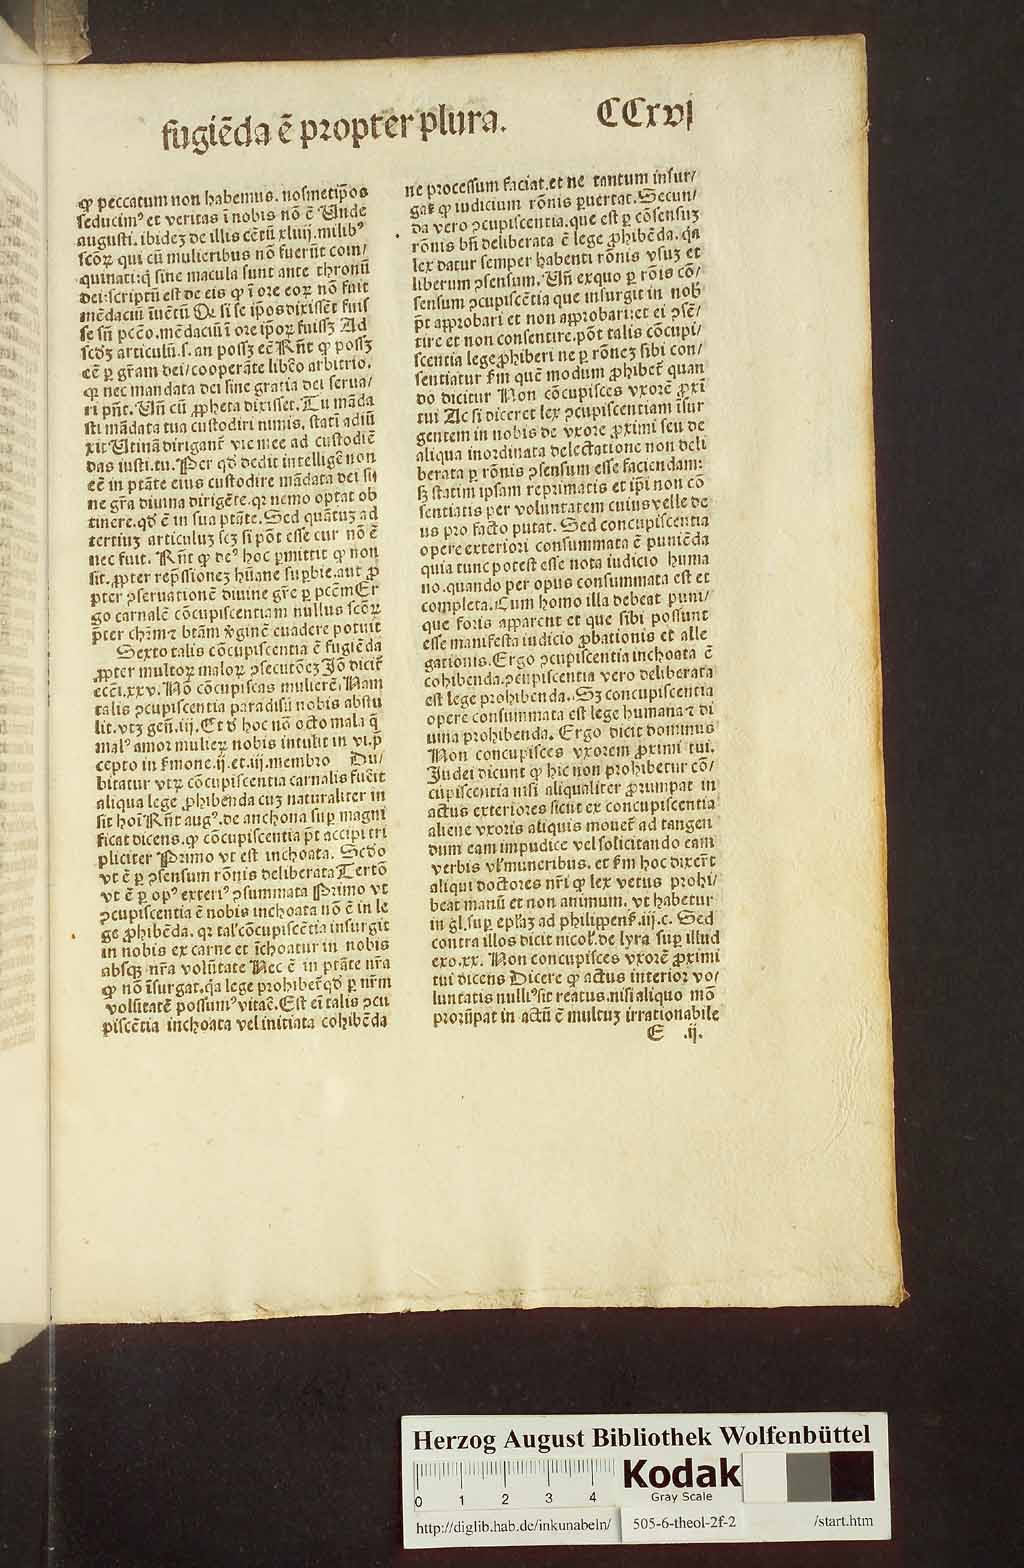 fugiēda ē propter plura. CCxvj
ꝙ peccatum non habemus. nosmetip̄os
seducimꝰ et veritas ī nobis nō ē Unde
augusti. ibideꝫ de illis cētū xliiij. milibꝰ
scōꝝ qui cū mulieribus nō fuerūt coin/
quinati: q̄ sine macula sunt ante thronū
dei: scriptū est de eis ꝙ ī ore eoꝝ nō fuit
mēdaciū īuētū Qꝛ si se ip̄os dixissēt fuis
se sn̄ pctō. mēdaciū ī ore ip̄oꝝ fuissꝫ Ad
scd̄ꝫ articulū. s. an possꝫ eē Rn̄t ꝙ possꝫ
eē ꝑ gr̄am dei/ cooperāte lib̄co arbitrio.
ꝙ nec mandata dei sine gratia dei serua/
ri pn̄t. Un̄ cū ꝓpheta dixisset. Tu māda
sti mādata tua custodiri nimis. statī adiū
xit Utinā dirigant̄ vie mee ad custodiē
das iusti. tu. Per qd̄ dedit intelligē non
eē in ptāte eius custodire mādata dei si
ne gr̄a diuina dirigēte. qꝛ nemo optat ob
tinere. qd̄ ē in sua ptāte. Sed quātuꝫ ad
tertiuꝫ articuluꝫ scꝫ si pōt esse cur nō ē
nec fuit. Rn̄t ꝙ deꝰ hoc ꝑmittit ꝙ non
sit. ꝓpter rep̄ssionez hūane suꝑbie. aut ꝓ
pter ↄseruationē diuine gr̄e ꝑ pctm̄ Er
go carnalē cōcupiscentiam nullus scōꝝ
p̄ter chꝛm̄ ⁊ btām v̄ginē euadere potuit
Sexto talis cōcupiscentia ē fugiēda
ꝓpter multoꝝ maloꝝ ↄsecutōeꝫ Jō dicit̄
ecci. xxv. Nō cōcupiscas mulierē. Nam
talis ↄcupiscentia paradisū nobis abstu
lit. vtꝫ gen̄. iij. Et d̄ hoc nō octo mala q̄
malꝰ amor mulieꝝ nobis intulit in vi. p̄
cepto in sermone. ij. et. iij. membro Du/
bitatur vtꝝ cōcupiscentia carnalis fuerit
aliqua lege ꝓhibenda cuꝫ naturaliter in
sit hoī Rn̄t augꝰ. de anchona suꝑ magni
ficat dicens. ꝙ cōcupiscentia p̄t accipi tri
pliciter Primo vt est inchoata. Sc̄do
vt ē ꝑ ↄsensum rōnis deliberata Tertō
vt ē ꝑ opꝰ exteriꝰ ↄsummata Primo vt
ↄcupiscentia ē nobis inchoata nō ē in le
ge ꝓhibēda. qꝛ tal' cōcupiscētia insurgit
in nobis ex carne et īchoatur in nobis
absqꝫ nr̄a volūtate Nec ē in ptāte nr̄a
ꝙ nō īsurgat. q̄a lege prohibet̄ qd̄ ꝑ nr̄m
volūtatē possumꝰ vitaē. Est eī talis ↄcu
piscētia inchoata vel initiata cohibēda
ne processum faciat. et ne tantum insur/
gat ꝙ iudicium rōnis ꝑuertat. Secun/
da vero ↄcupiscentia. que est ꝑ cōsensuꝫ
rōnis bn̄ deliberata ē lege ꝓhibēda. q̄a
lex datur semper habenti rōnis vsuꝫ et
liberum ↄsensum. Un̄ ex quo ꝑ rōnis cō/
sensum ↄcupiscētia que insurgit in nob̄
p̄t approbari et non approbari: et ei ↄsē/
tire et non consentire. pōt talis cōcupi/
scentia lege ꝓhiberi ne ꝑ rōneꝫ sibi con/
sentiatur s̄m quē modum ꝓhibet̄ quan
do dicitur Non cōcupisces vxorē ꝓxī
tui Ac si diceret lex ↄcupiscentiam īsur
gentem in nobis de vxore ꝓximi seu de
aliqua inordinata delectatione non deli
berata ꝑ rōnis ↄsensum esse faciendam:
sꝫ statim ipsam reprimatis et ip̄i non cō
sentiatis per voluntatem cuius velle de
us pro facto putat. Sed concupiscentia
opere exteriori consummata ē puniēda
quia tunc potest esse nota iudicio huma
no. quando per opus consummata est et
completa. Cum homo illa debeat puni/
que foris apparent et que sibi possunt
esse manifesta iudicio ꝓbationis et alle
gationis. Ergo ↄcupiscentia inchoata ē
cohibenda. ↄcupiscentia vero deliberata
est lege prohibenda. Sꝫ concupiscentia
opere consummata est lege humana ⁊ di
uina prohibenda. Ergo dicit dominus
Non concupisces vxorem ꝓximi tui.
Judei dicunt ꝙ hic non prohibetur cō/
cupiscentia nisi aliqualiter ꝓrumpat in
actus exteriores sicut ex concupiscentia
aliene vxoris aliquis mouet̄ ad tangen
dum eam impudice vel solicitando eam
verbis vl' muneribus. et s̄m hoc dixer̄t
aliqui doctores nr̄i ꝙ lex vetus prohi/
beat manū et non animum. vt habetur
in gl. suꝑ epl'aꝫ ad philippen̄. iij. c. Sed
contra illos dicit nicol'. de lyra suꝑ illud
exo. xx. Non concupisces vxorē ꝓximi
tui dicens Dicere ꝙ actus interior vo/
luntatis nulliꝰ sit reatus. nisi aliquo mō
prorūpat in actū ē multuꝫ irrationabile
E .ij.
Herzog August Bibliothek Wolfenbüttel
0 1 2 3 4
Kodak
Gray Scale
http://diglib.hab.de/inkunabeln/ 505-6-theol-2f-2 /start.htm